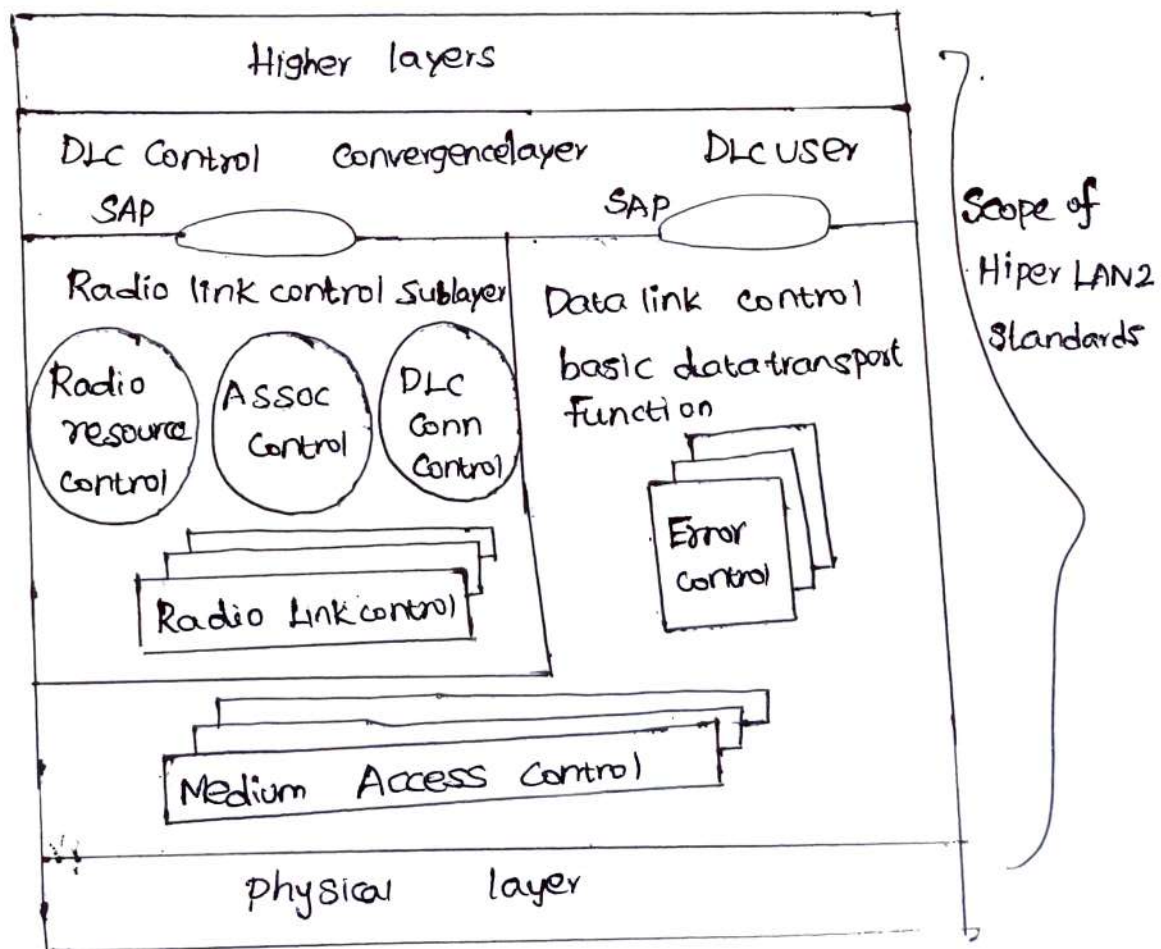 Higher layers
DLC Control Convergencelayer DLC USER
SAP SAP
Radio link control Sublayer
Radio
resource
control
Assoc
Control
DLC
Conn
Control
Data link control
basic datatransport
function
Error
control
Radio Link control
Medium Access Control
physical layer
Scope of
Hiper LAN2
Standards